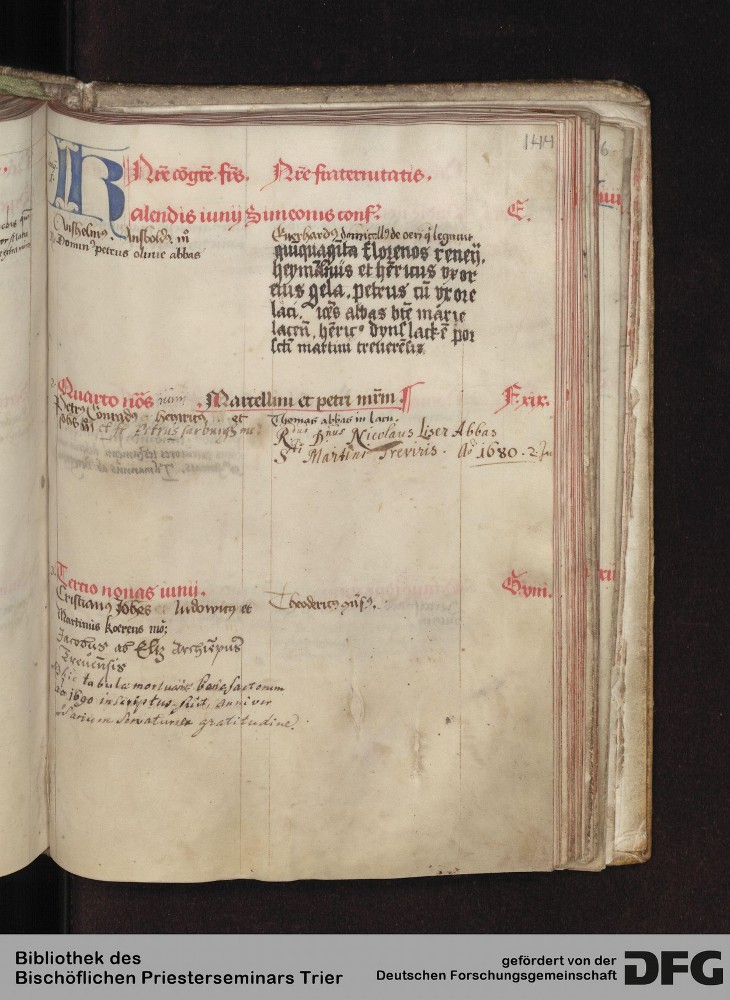 144
Nr̄e cōgr̄e. fr̄s. Nr̄e fraternitatis.
Kalendis iunij Simeonis conf. E.
Wilhelmus. Ansbold m̄
Domin petrus olime abbas
Euerhardus domicellus de oeri q legauit
quiquagīta florenos reneñ.
heymānus et hēricus vxor
eius gela. petrus cū vxore
laci. abbas bte marie
hēric
sc̄ti martini treuerēsis
Quarto nōs iunij. Marcellini et petri mr̄m. F. xix.
Petrus Conradus Henricus et
et fr. Petrus sarburgs mo:
Thomas abbas in lacu.
Nicolaus Liser Abbas
Sti Martini Treviris. Aō 1680. 2. Ju
Tercio nonas iunij. G. viii.
Cristianus Johēs Ludowicus et
Martinus koerens mō:
Theodericus
Jacobus ab Eltz Archiepus
Treuēnsis
hic tabulæ mortuariæ benefactorum
aō 1690 inscriptus fuit, anniver
sarium servaturex gratitudine.
Bibliothek des
Bischöflichen Priesterseminars Trier
gefördert von der
Deutschen Forschungsgemeinschaft
DFG